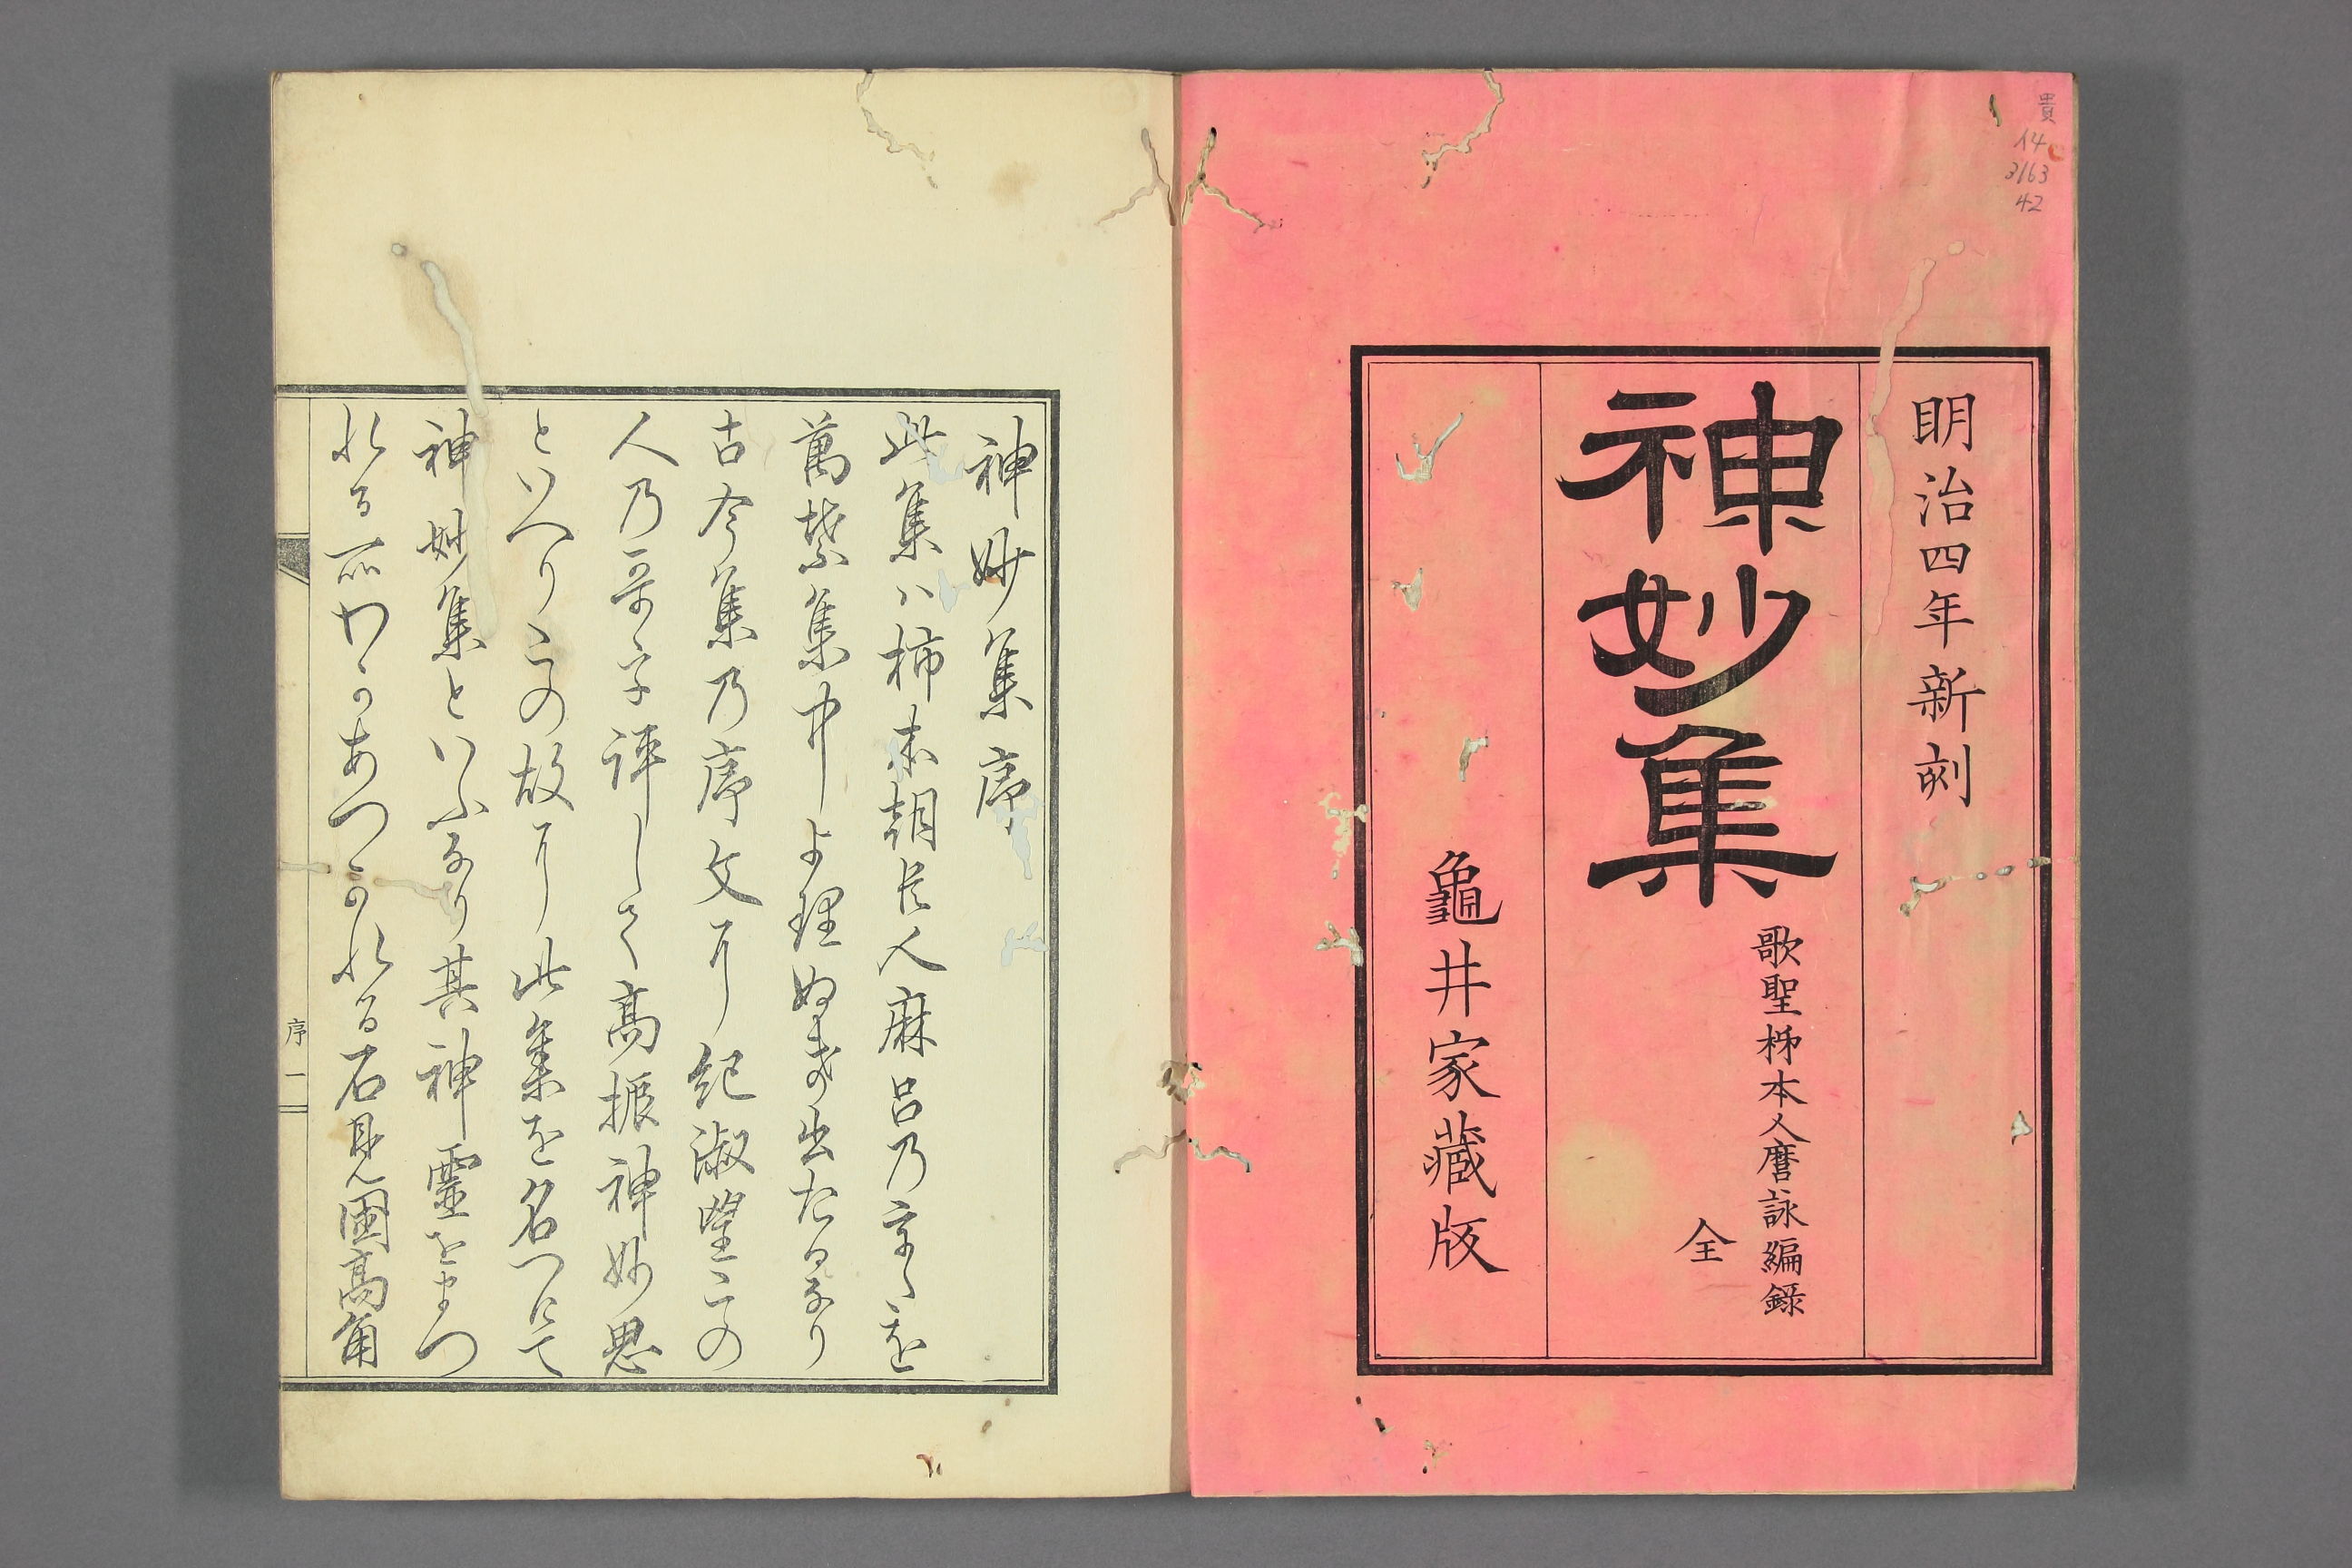 貴
14
3163
42
明治四年新刻
神妙集
歌聖柹本人麿詠編録
全
龜井家藏版
神妙集序
此集ハ柿本朝臣人麻呂乃哥を
萬葉集中より理ぬき出たるなり
古今集乃序文に紀淑望この
人乃哥を評して高振神妙思
といへりこの故に此集を名つけて
神妙集といふなり其神靈をまつ
れる所わかあつかれる石見國高角
序 一